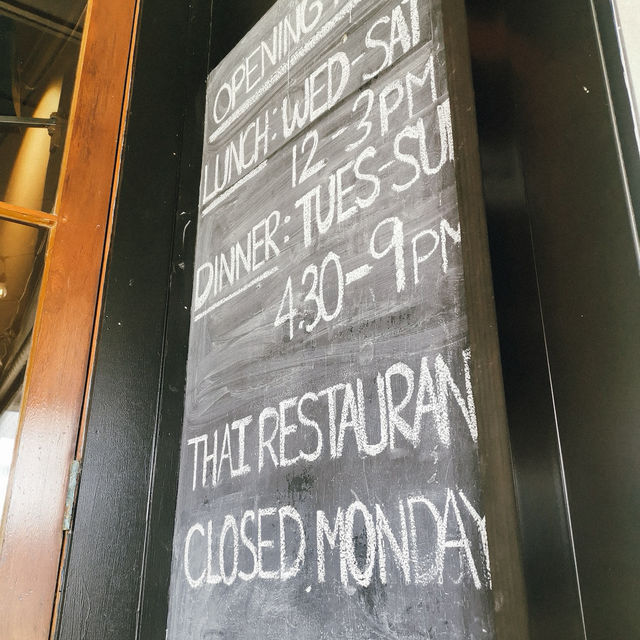 OPENING
LUNCH: WED-SAT
12-3PM
DINNER: TUES-SUN
4.30-9PM
THAI RESTAURAN
CLOSED MONDAY